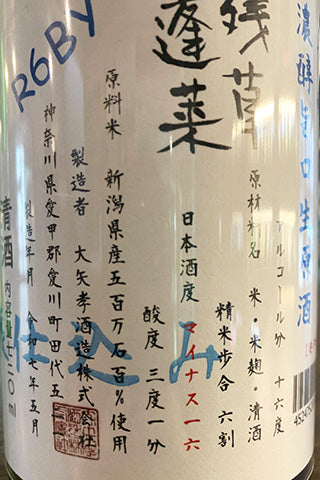 濃醇旨口生原酒
残草
蓬莱
R6BY
アルコール分 十六度
原材料名 米・米麹・清酒
精米歩合 六割
日本酒度 マイナス一六
酸度 三度一分
原料米 新潟県産五百万石百%使用
製造者 大矢孝酒造株式会社
神奈川県愛甲郡愛川町田代五
製造年月 令和七年五月
清酒 内容量七二〇ml
仕込み